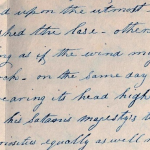 d upon the utmost
shed the lase - other
ng as if the wind mi
ok - on the same day
earing its head high
his Satan's majesty's
riosities equally as well